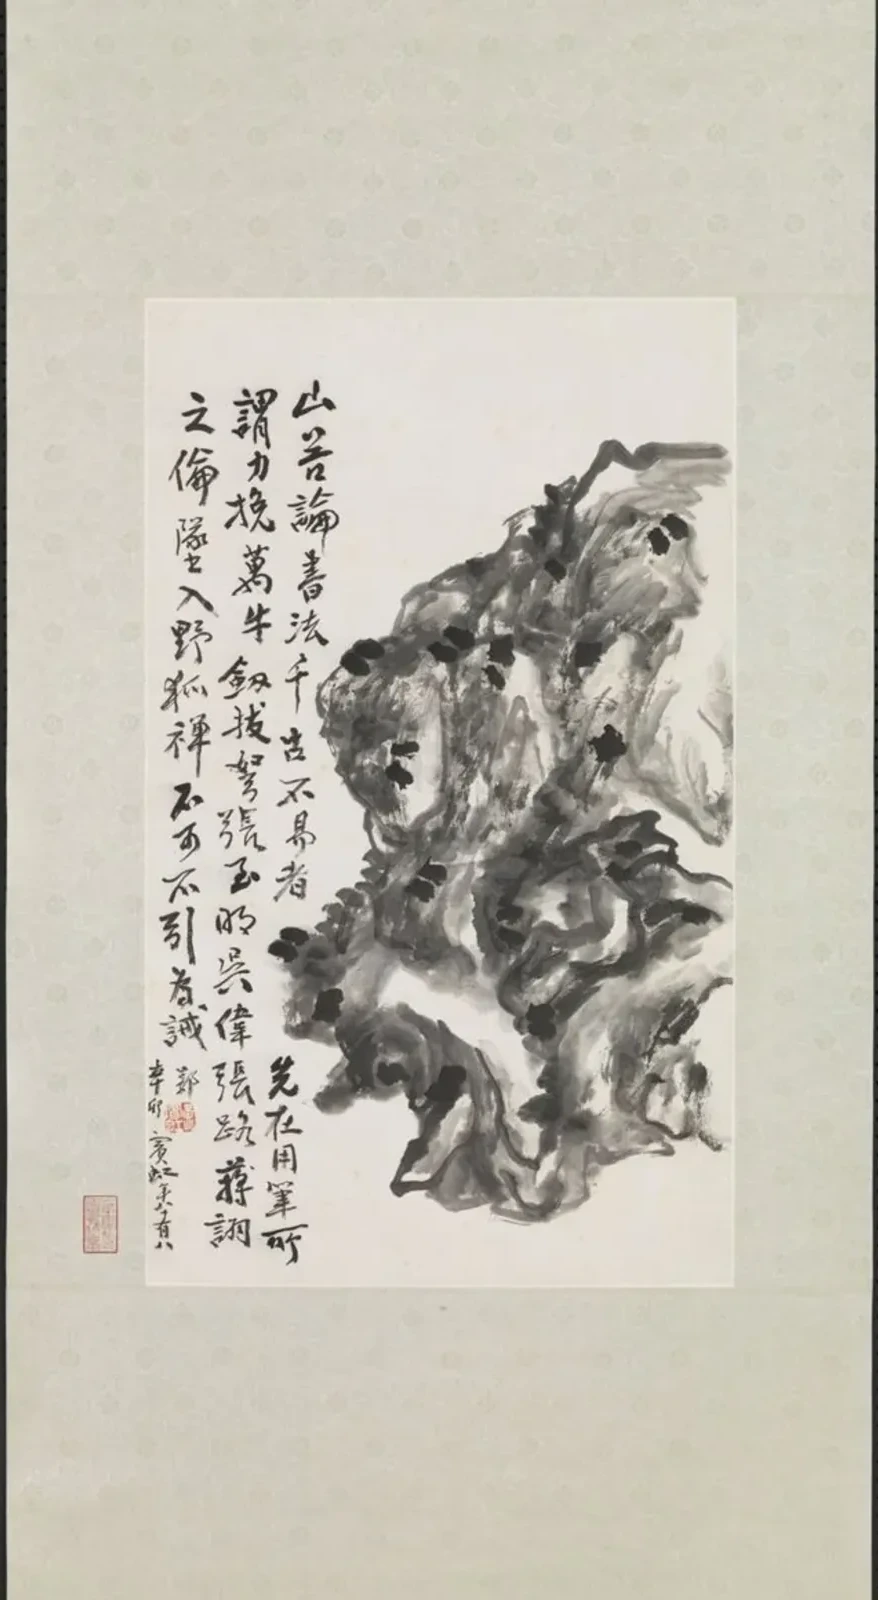 山谷論書法千古不易者先在用筆所
謂力挽萬牛劍拔弩張至明吳偉張路蔣詡
之倫墜入野狐禪不可不引為誡
辛卯賓虹年八十有八